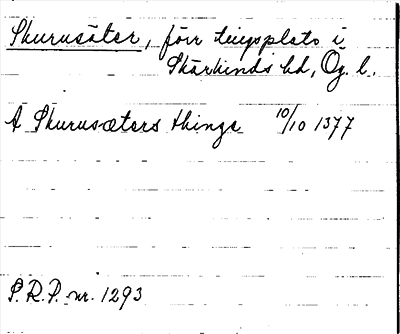 Skurusäter, förr tingsplats i
Skärkinds hd, Ög. l.
A Skurusæters thinge 10/10 1377
S.R.P. nr. 1293